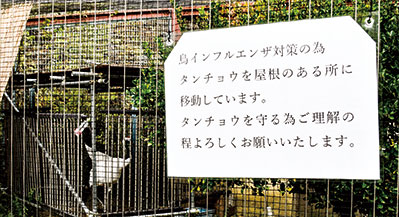 鳥インフルエンザ対策の為
タンチョウを屋根のある所に
移動しています。
タンチョウを守る為ご理解の
程よろしくお願いいたします。